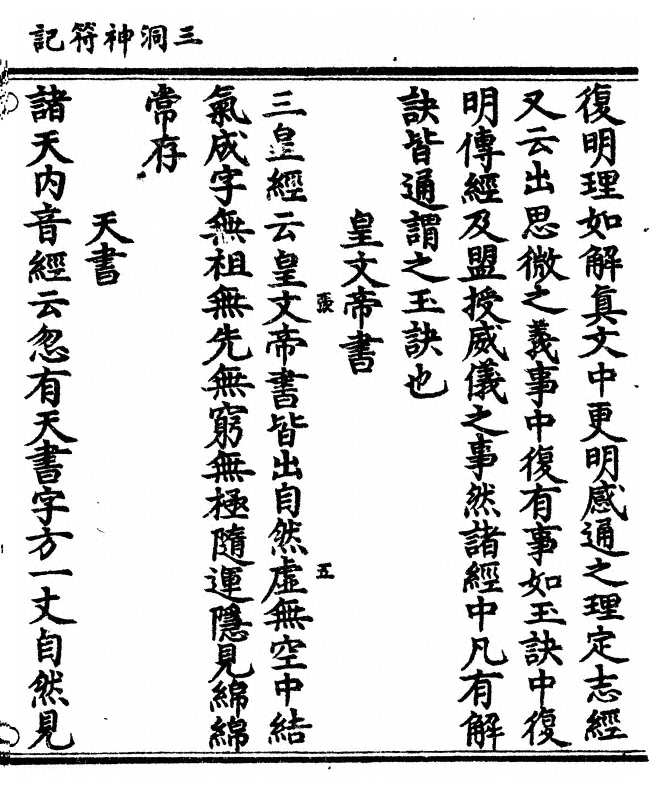 三洞神符記
復明理如解真文中更明感通之理定志經
又云出思微之義事中復有事如玉訣中復
明傳經及盟授威儀之事然諸經中凡有解
訣皆通謂之玉訣也
皇文帝書
張
五
三皇經云皇文帝書皆出自然虛無空中結
氣成字無祖無先無窮無極隨運隱見綿綿
常存
天書
諸天內音經云忽有天書字方一丈自然見